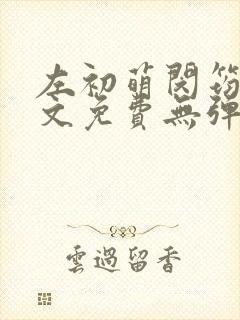 左初萌閔筠
文免費無彈
雲過留香